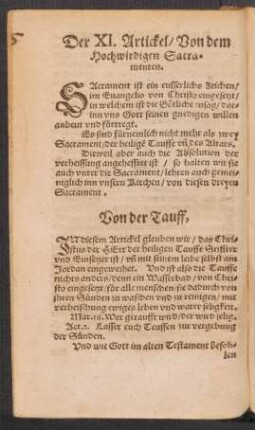 Der XI. Artickel/ Von dem
Hochwirdigen Sacra-
menten.
SAcrament ist ein eusserlichs Zeichen/
im Euangelio von Christo eingesezt/
in welchem ist die Götliche zusag/ dar-
inn vns Gott seinen gnedigen willen
anbeut vnd fürtregt.
Es sind fürnemlich nicht mehr als zwey
Sacrament/ der heilige Tauffe vñ des Altars.
Dieweil aber auch die Absolution der
verheissung angehefftet ist/ so halten wir sie
auch vnter die Sacrament/ lehren auch gemei-
niglich inn vnsern Kirchen/ von diesen dreyen
Sacrament.
Von der Tauff,
IN diesem Artickel glauben wir/ das Chri-
stus der HErr der heiligen Tauffe Stiffter
vnd Einsetzer ist/ vñ mit seinem leibe selbst am
Jordan eingeweihet. Vnd ist also die Tauffe
nichts anders/ denn ein Wasserbad/ von Chri-
sto eingesezt/ für alle menschen/ sie dadurch von
ihren Sünden zu waschen vnd zu reinigen/ mit
verheischung ewiges leben vnd warer seligkeit.
Mar.16. Wer geraufft wird/ der wird selig.
Act.2. Lasset euch Teuffen zur vergebung
der Sünden.
Vnd wie Gott im alten Testament befoh-
len